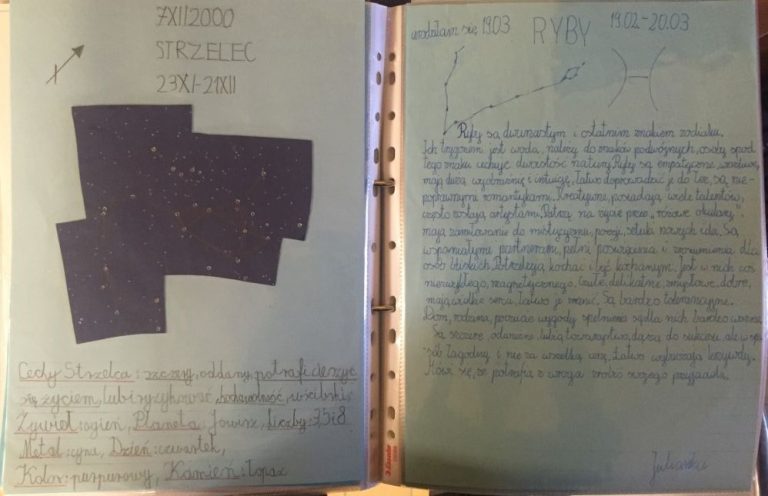 7XII2000
STRZELEC
23XI-21XII
Cechy Strzelca: szczery, oddany, potrafi cieszyć
się życiem, lubi ryzykować, wścibski
Żywioł: ogień, Planeta: Jowisz, Liczby: 7,5 i 8
Metal: cyna, Dzień: czwartek,
Kolor: purpurowy, Kamień: topaz
urodziłam się 19.03
RYBY
19.02-20.03
Ryby są dwunastym i ostatnim znakiem zodiaku.
Ich żywiołem jest woda, należą do znaków podwójnych, osoby spod
tego znaku cechuje dwoistość natury. Ryby są empatyczne, wrażliwe,
mają dużą wyobraźnię i intuicję. Łatwo doprowadzić je do łez, są nie-
poprawnymi romantykami. Kreatywne, posiadają wiele talentów,
często zostają artystami. Patrzą na życie przez "różowe okulary",
mają zamiłowanie do mistycyzmu, poezji, szukają nowych idei. Są
wspaniałymi partnerami, pełni poświęcenia i zrozumienia dla
osób bliskich. Potrzebują kochać i być kochanym. Jest w nich coś
niezwykłego, magnetycznego. Czułe, delikatne, zmysłowe, dobre,
mają wielkie serca, łatwo je zranić. Są bardzo tolerancyjne.
Dom, rodzina, poczucie wygody spełnienia są dla nich bardzo ważne.
Są szczere, oddane, lubią towarzystwo, dążą do sukcesu, ale w spo-
sób łagodny i nie za wszelką cenę. Łatwo wybaczają krzywdy.
Mówi się, że potrafią z wroga zrobić swojego przyjaciela.